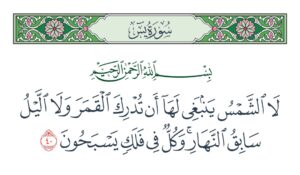 سُورَةُ يسٓ
بِسْمِ ٱللَّهِ ٱلرَّحْمَٰنِ ٱلرَّحِيمِ
لَا ٱلشَّمْسُ يَنۢبَغِى لَهَآ أَن تُدْرِكَ ٱلْقَمَرَ وَلَا ٱلَّيْلُ
سَابِقُ ٱلنَّهَارِ ۚ وَكُلٌّ فِى فَلَكٍ يَسْبَحُونَ ٤٠